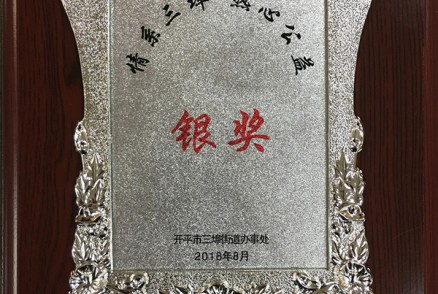 情系三埠 热心公益
银奖
开平市三埠街道办事处
2018年8月